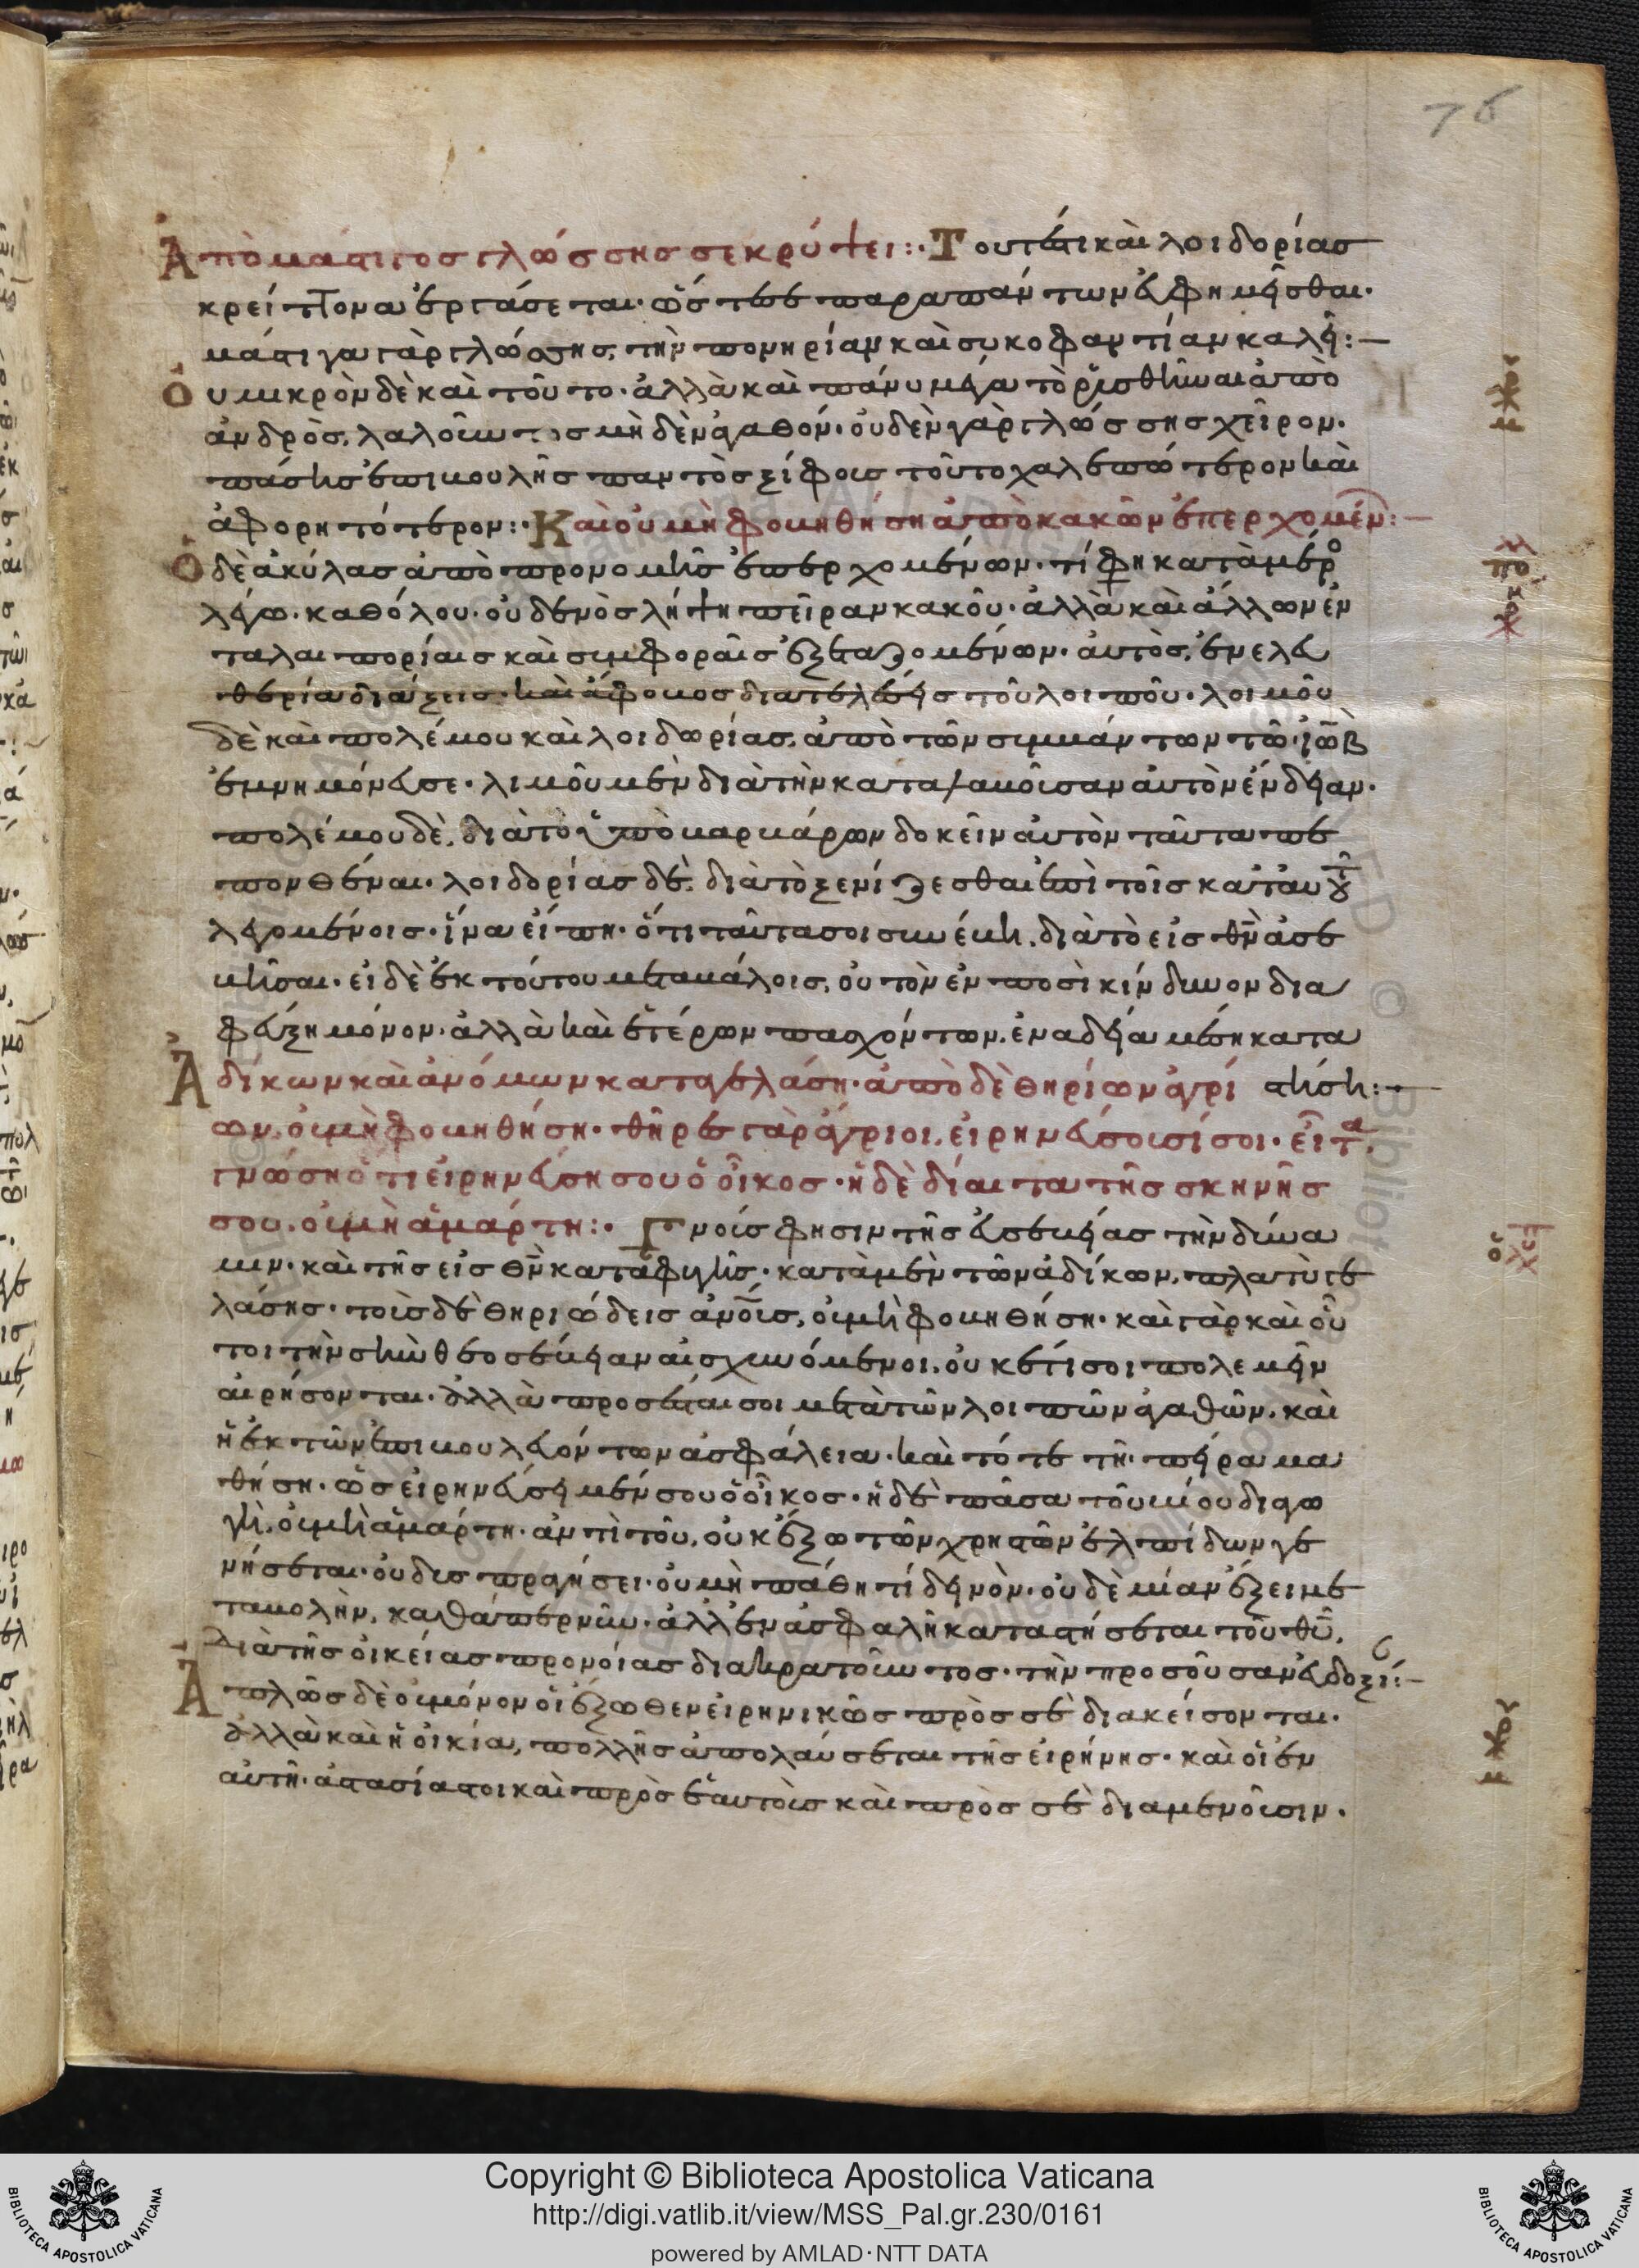 76
Ἀπὸ μάστιγος γλώσσης σε κρύψει:· Τουτέστι καὶ λοιδορίας
κρείττονα ἐργάσεται· ὥστε παρὰ πάντων εὐφημεῖσθαι·
μάστιγα γὰρ γλώσσης, τὴν πονηρίαν καὶ συκοφαντίαν καλεῖ:—
Οὐ μικρὸν δὲ καὶ τοῦτο· ἀλλὰ καὶ πάνυ μέγα τὸ ῥυσθῆναι ἀπὸ
ἀνδρὸς, λαλοῦντος μηδὲν ἀγαθόν· οὐδὲν γὰρ γλώσσης χεῖρον·
πάσης ἐπιβουλῆς παντὸς ξίφους τοῦτο χαλεπώτερον καὶ
ἀφορητότερον:· Καὶ οὐ μὴ φοβηθήση ἀπὸ κακῶν ἐπερχομέν:—
Ὁ δὲ ἀκύλας ἀπὸ προνομῆς ἐπερχομένων· τί φη κατὰ μέρο
λέγω· καθόλου· οὐδενὸς λήψη πεῖραν κακοῦ· ἀλλὰ καὶ ἄλλων ἐν
ταλαιπορίαις καὶ συμφοραῖς ἐξεταζομένων· αὐτὸς, ἐν ἐλευ
θερία διάξεις· καὶ ἄφοβος διατελέσεις τοῦ λοιποῦ· λοιμοῦ
δὲ καὶ πολέμου καὶ λοιδωρίας, ἀπὸ τῶν συμβάντων τῶ ἰὼβ
ἐμνημόνευσε· λιμοῦ μὲν διὰ τὴν καταλαβοῦσαν αὐτὸν ἔνδειαν·
πολέμου δὲ, διὰ τὸ ὑπὸ βαρβάρων δοκεῖν αὐτὸν ταῦτα πε
πονθέναι· λοιδορίας δὲ, διὰ τὸ ξενίζεσθαι ἐπὶ τοῖς κατ' αυτοῦ
λεγομένοις· ἵνα εἴπη· ὅτι ταῦτα σοι συνέβη, διὰ τὸ εἰς θν ἀσε
βῆσαι· εἰ δὲ ἐκ τούτου μεταβάλοις, οὐ τὸν ἐν ποσὶ κίνδυνον δια
φεύξη μόνον· ἀλλὰ καὶ ἑτέρων πασχόντων, ἐν ἀδεία μέση κατα
στήση:—
Ἀδίκων καὶ ἀνόμων καταγελάση· ἀπὸ δὲ θηρίων ἀγρί
ων, οὐ μὴ φοβηθήση· θῆρες γὰρ ἄγριοι, εἰρηνεύσουσί σοι· εἶτα
γνώση ὅτι εἰρηνεύση σου ὁ οἶκος· ἡ δὲ δίαιτα τῆς σκηνῆς
σου, οὐ μὴ ἁμάρτη:· Γνούς φησιν τῆς εὐσεβείας τὴν δύνα
μιν· καὶ τῆς εἰς θν καταφυγῆς· κατὰ μὲν τῶν ἀδίκων, πλατὺ γε
λάσης· τοὺς δὲ θηριώδεις ἀνους, οὐ μὴ φοβηθήση· καὶ γὰρ καὶ οὗ
τοι τὴν σὴν θεοσέβειαν αἰσχυνόμενοι, οὐκ ἔτι σοι πολεμεῖν
αἱρήσονται· ἀλλὰ προσέσται σοι μετὰ τῶν λοιπῶν ἀγαθῶν, καὶ
ἡ ἐκ τῶν ἐπιβουλευόντων ἀσφάλεια· καὶ τότε τῆ πείρα μα
θήση· ὡς εἰρηνεύσει μέν σου ὁ οἶκος· ἡ δὲ πᾶσα τοῦ βίου διαγω
γὴ, οὐ μὴ ἁμάρτη· ἀντὶ τοῦ, οὐκ ἔξω τῶν χρηστῶν ἐλπίδων γε
νήσεται· οὐ δυσπραγήσει· οὐ μὴ πάθη τί δεινὸν· οὐδὲ μίαν ἕξει με
ταβολὴν, καθάπερ νῦν· ἀλλ' ἐν ἀσφαλῆ καταστήσεται τοῦ θυ,
διὰ τῆς οἰκείας προνοίας διακρατοῦντος· τὴν προσοῦσαν εὐδοξί:—
Ἁπλῶς δὲ οὐ μόνον οἱ ἔξωθεν εἰρηνικῶς πρὸς σὲ διακείσονται·
ἀλλὰ καὶ ἡ οἰκία, πολλῆς ἀπολαύσεται τῆς εἰρήνης· καὶ οἱ ἐν
αὐτῆ· ἀστασίαστοι καὶ πρὸς ἑαυτοὺς καὶ πρὸς σὲ διαμενοῦσιν.
Copyright © Biblioteca Apostolica Vaticana
http://digi.vatlib.it/view/MSS_Pal.gr.230/0161
powered by AMLAD·NTT DATA
BIBLIOTECA APOSTOLICA VATICANA
BIBLIOTECA APOSTOLICA VATICANA